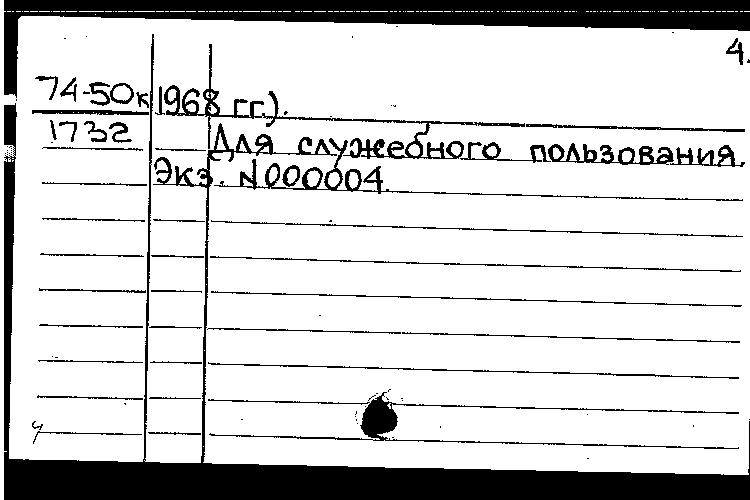 4.
74-50к 1968 гг.).
1732 Для служебного пользования.
Экз. N000004